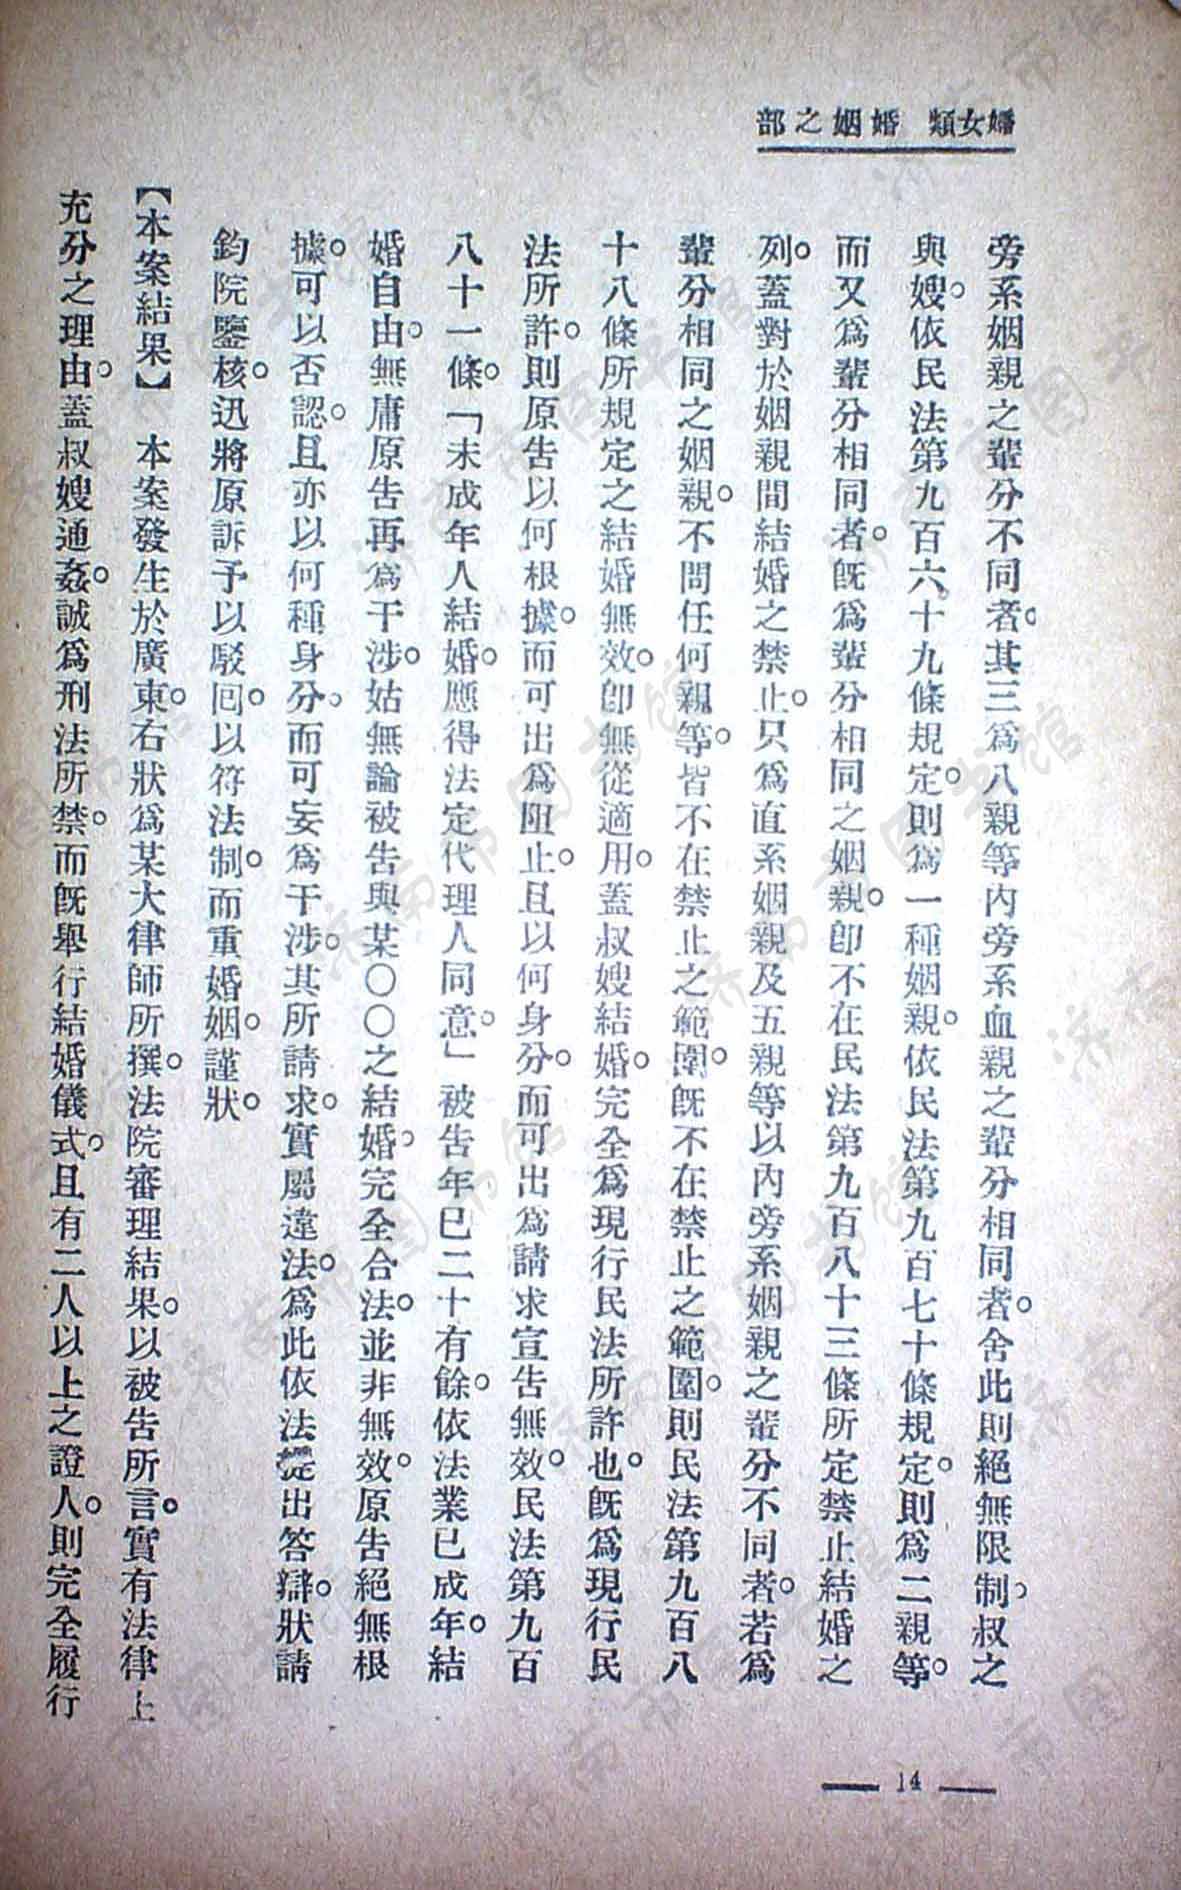 婦女類　婚姻之部
旁系姻親之輩分不同者。其三爲八親等內旁系血親之輩分相同者。舍此則絕無限制。叔之
與嫂。依民法第九百六十九條規定。則爲一種姻親。依民法第九百七十條規定。則爲二親等。
而又爲輩分相同者。旣爲輩分相同之姻親。卽不在民法第九百八十三條所定禁止結婚之
列。蓋對於姻親間結婚之禁止。只爲直系姻親及五親等以內旁系姻親之輩分不同者。若爲
輩分相同之姻親。不問任何親等。皆不在禁止之範圍。旣不在禁止之範圍。則民法第九百八
十八條所規定之結婚無效。卽無從適用。蓋叔嫂結婚。完全爲現行民法所許也。旣爲現行民
法所許。則原告以何根據。而可出爲阻止。且以何身分。而可出爲請求宣告無效。民法第九百
八十一條。「未成年人結婚。應得法定代理人同意。」被告年已二十有餘。依法業已成年。結
婚自由。無庸原告再爲干涉。姑無論被告與某〇〇之結婚。完全合法。並非無效。原告絕無根
據。可以否認。且亦以何種身分。而可妄爲干涉。其所請求。實屬違法。爲此依法提出答辯。狀請
鈞院鑒核。迅將原訴予以駁回。以符法制。而重婚姻。謹狀。
【本案結果】　本案發生於廣東。右狀爲某大律師所撰。法院審理結果。以被告所言。實有法律上
充分之理由。蓋叔嫂通姦。誠爲刑法所禁。而旣舉行結婚儀式。且有二人以上之證人。則完全履行
14